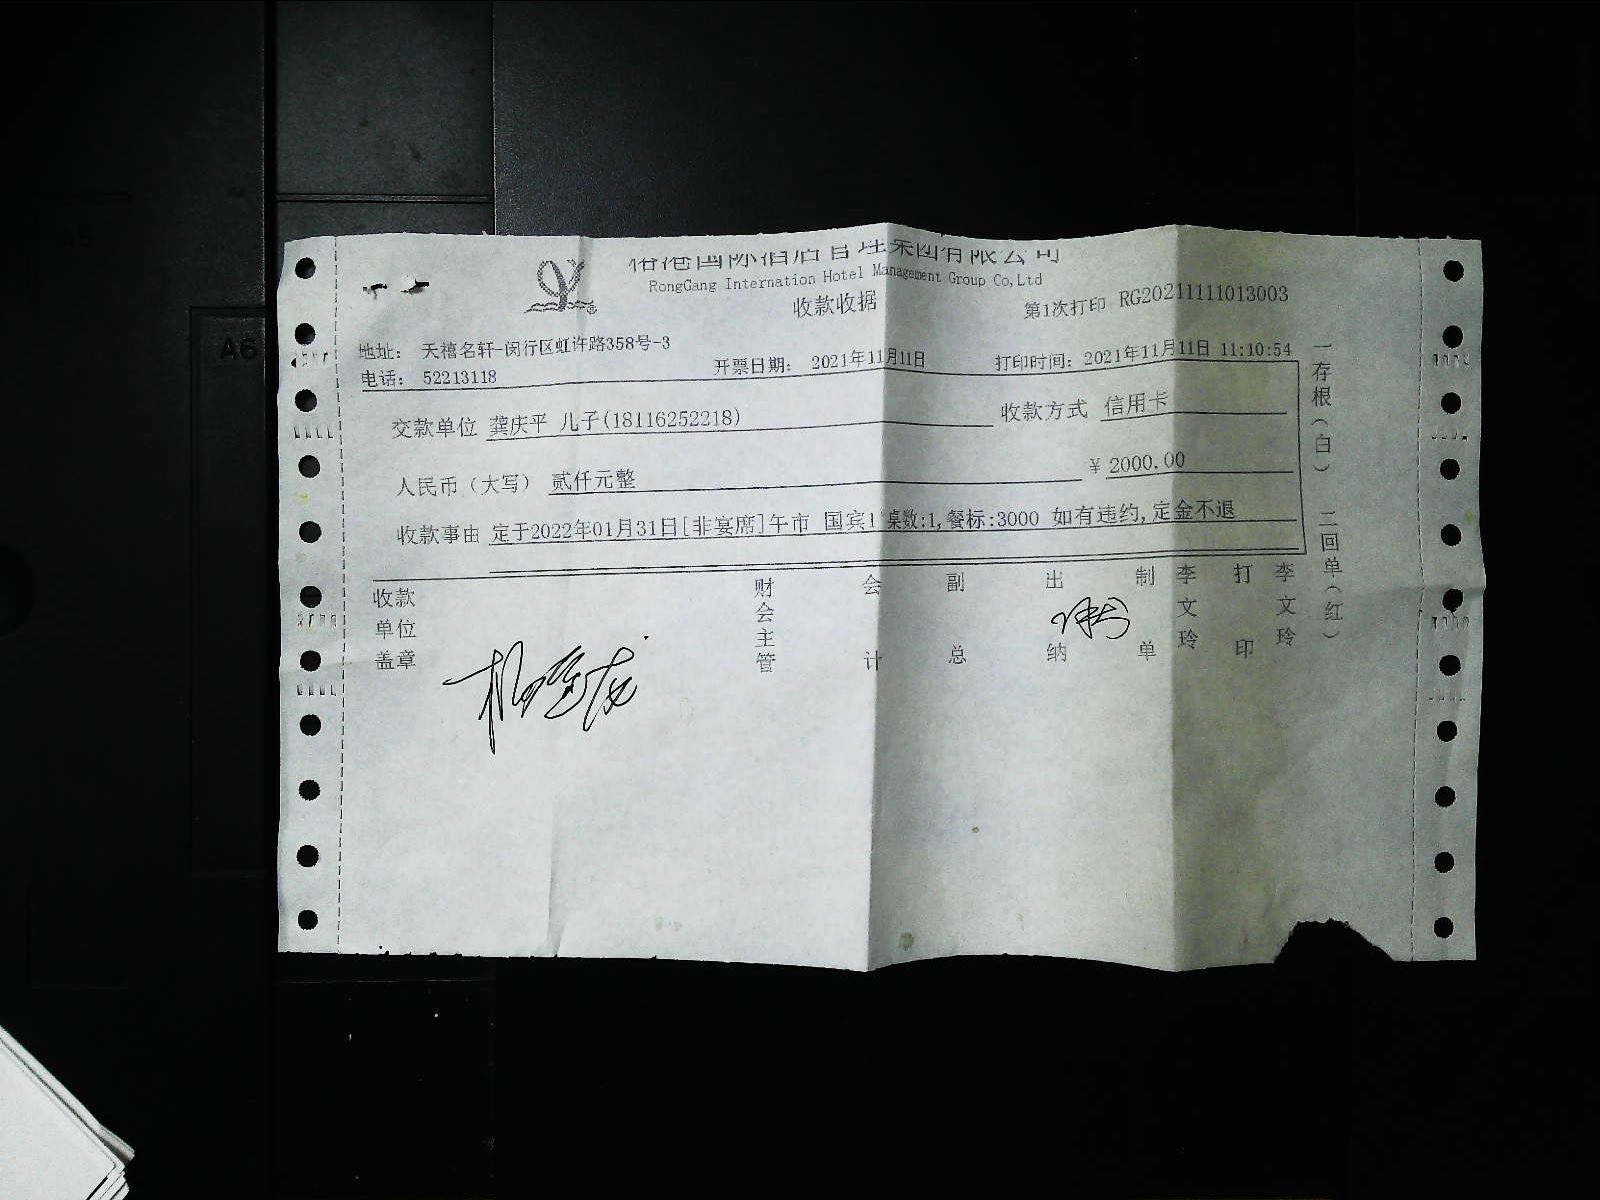 国际酒店管理集团有限公司
RongGang Internation Hotel Management Group Co,Ltd
收款收据
第1次打印 RG20211111013003
地址： 天禧名轩-闵行区虹许路358号-3
电话： 52213118
开票日期： 2021年11月11日
打印时间：2021年11月11日 11:10:54
交款单位 龚庆平 儿子(18116252218)
收款方式 信用卡
人民币（大写） 贰仟元整
¥ 2000.00
收款事由 定于2022年01月31日[非宴席]午市 国宾1 桌数:1,餐标:3000 如有违约,定金不退
收款单位盖章
财会主管
会计
副总
出纳
制单 李文玲
打印 李文玲
一存根（白） 二回单（红）
A6